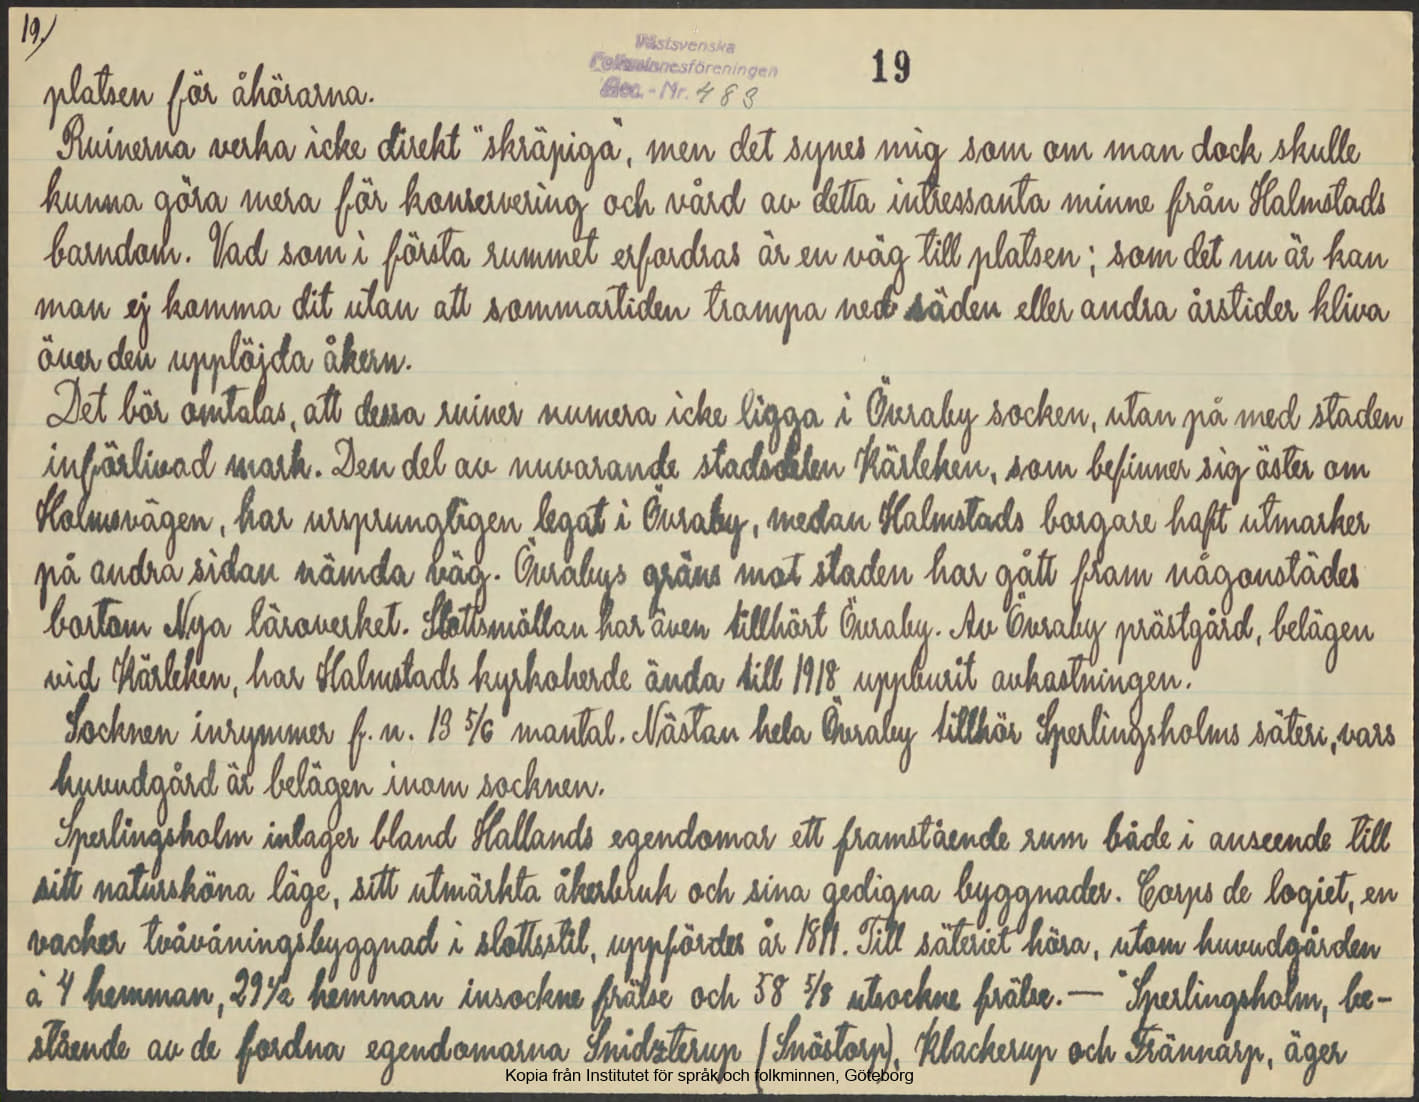 19.)
Västsvenska
Folkminnesföreningen
Acc.-Nr. 483
19
platsen för åhörarna.
Ruinerna verka icke direkt "skräpiga", men det synes mig som om man dock skulle
kunna göra mera för konservering och vård av detta intressanta minne från Halmstads
barndom. Vad som i första rummet erfordras är en väg till platsen; som det nu är kan
man ej komma dit utan att sommartiden trampa ned säden eller andra årstider kliva
över den upplöjda åkern.
Det bör omtalas, att dessa ruiner numera icke ligga i Övraby socken, utan på med staden
införlivad mark. Den del av nuvarande stadsdelen Kärleken, som befinner sig öster om
Holmsvägen, har ursprungligen legat i Övraby, medan Halmstads borgare haft utmarker
på andra sidan nämda väg. Övrabys gräns mot staden har gått fram någonstädes
bortom Nya läroverket. Slottsmöllan har även tillhört Övraby. Av Övraby prästgård, belägen
vid Kärleken, har Halmstads kyrkoherde ända till 1918 uppburit avkastningen.
Socknen inrymmer f. n. 13 5/6 mantal. Nästan hela Övraby tillhör Sperlingsholms säteri, vars
huvudgård är belägen inom socknen.
Sperlingsholm intager bland Hallands egendomar ett framstående rum både i anseende till
sitt natursköna läge, sitt utmärkta åkerbruk och sina gedigna byggnader. Corps de logiet, en
vacker tvåvåningsbyggnad i slottsstil, uppfördes år 1811. Till säteriet höra, utom huvudgården
à 4 hemman, 29 1/2 hemman insockne frälse och 58 5/8 utsockne frälse. — "Sperlingsholm, be-
stående av de fordna egendomarna Snidzterup (Snöstorp), Klackerup och Trännarp, äger
Kopia från Institutet för språk och folkminnen, Göteborg